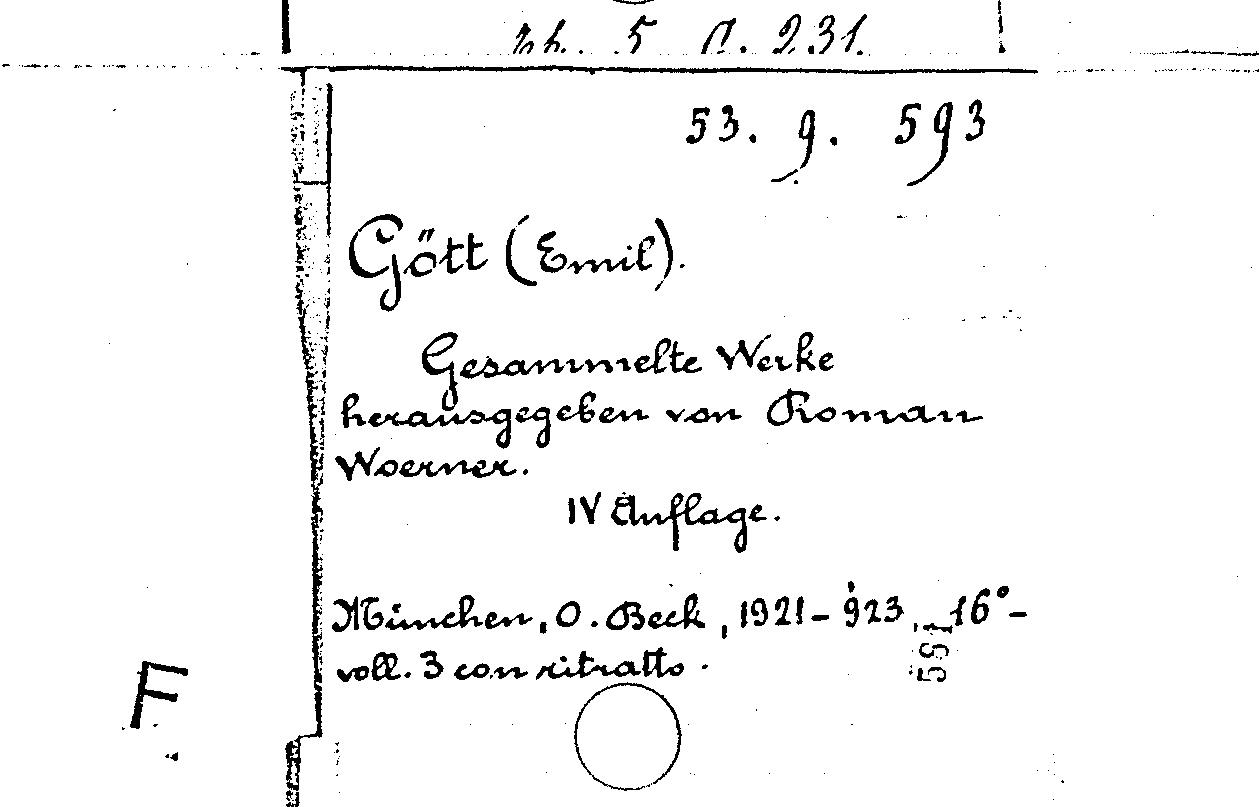 5 231.
53. g. 593
Gött (Emil).
Gesammelte Werke
herausgegeben von Roman
Woerner.
IV Auflage.
München, O. Beck, 1921-923, 16°-
voll. 3 con ritratto.
591
F